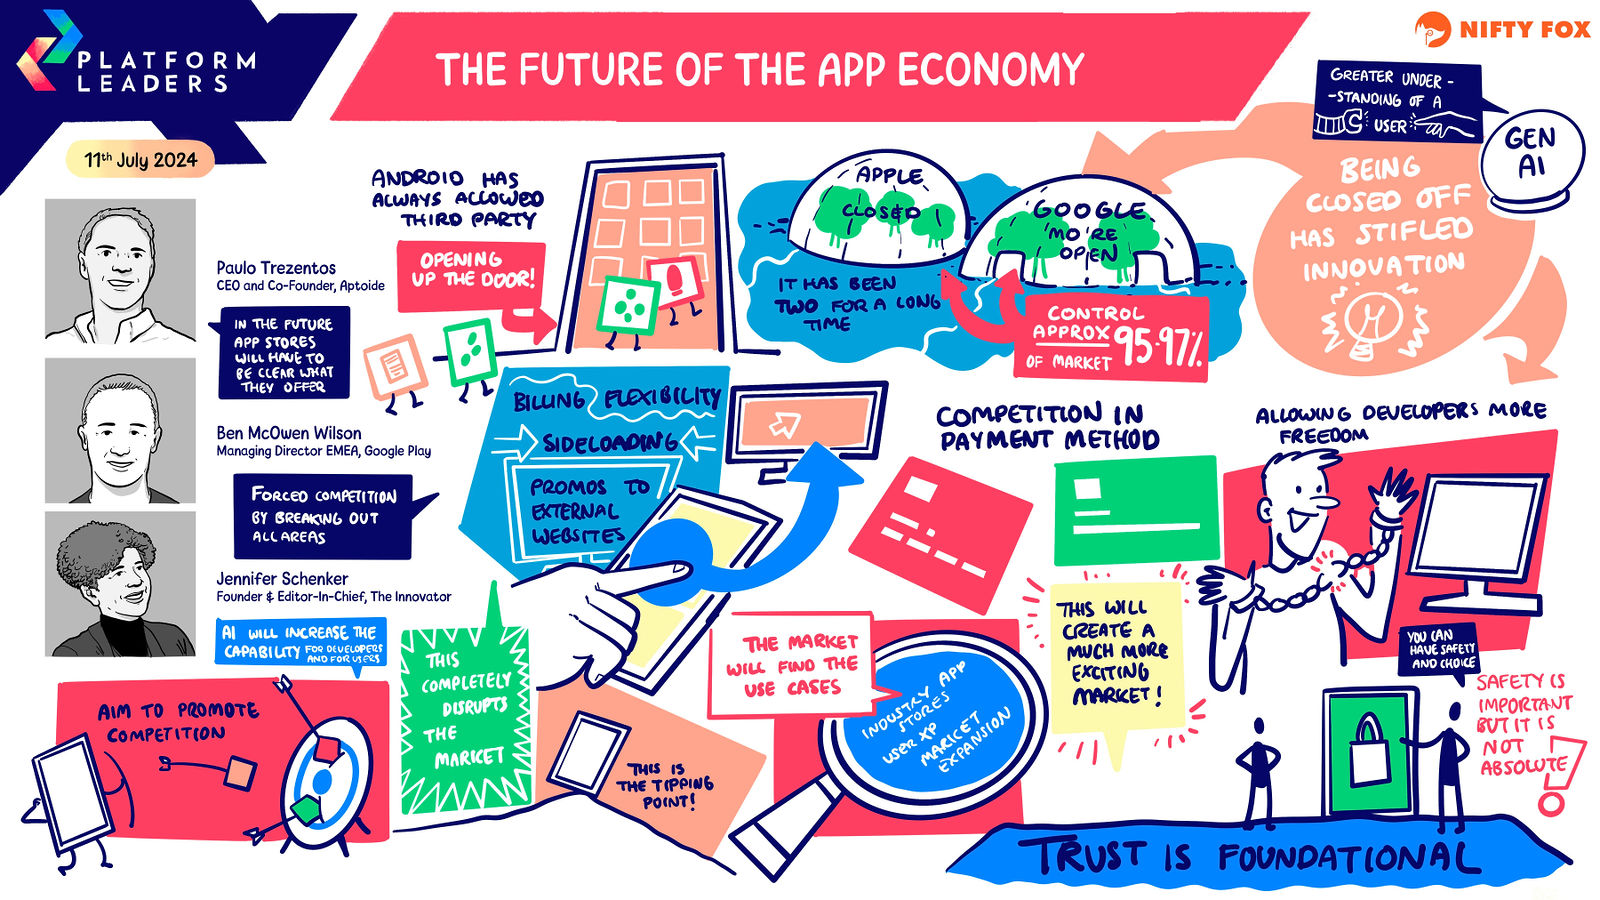 PLATFORM
LEADERS
THE FUTURE OF THE APP ECONOMY
NIFTY FOX
11th July 2024
Paulo Trezentos
CEO and Co-Founder, Aptoide
IN THE FUTURE
APP STORES
WILL HAVE TO
BE CLEAR WHAT
THEY OFFER
Ben McOwen Wilson
Managing Director EMEA, Google Play
FORCED COMPETITION
BY BREAKING OUT
ALL AREAS
Jennifer Schenker
Founder & Editor-In-Chief, The Innovator
AI WILL INCREASE THE
CAPABILITY FOR DEVELOPERS
AND FOR USERS
AIM TO PROMOTE
COMPETITION
ANDROID HAS
ALWAYS ALLOWED
THIRD PARTY
OPENING
UP THE DOOR!
APPLE
CLOSED
GOOGLE
MORE
OPEN
IT HAS BEEN
TWO FOR A LONG
TIME
CONTROL
APPROX
OF MARKET
95-97%
GREATER UNDER-
-STANDING OF A
USER
GEN
AI
BEING
CLOSED OFF
HAS STIFLED
INNOVATION
BILLING FLEXIBILITY
SIDELOADING
PROMOS TO
EXTERNAL
WEBSITES
THIS
COMPLETELY
DISRUPTS
THE
MARKET
THIS IS
THE TIPPING
POINT!
COMPETITION IN
PAYMENT METHOD
THIS WILL
CREATE A
MUCH MORE
EXCITING
MARKET!
THE MARKET
WILL FIND THE
USE CASES
INDUSTRY APP
STORES
USER XP
MARKET
EXPANSION
ALLOWING DEVELOPERS MORE
FREEDOM
YOU CAN
HAVE SAFETY
AND CHOICE
SAFETY IS
IMPORTANT
BUT IT IS
NOT
ABSOLUTE!
TRUST IS FOUNDATIONAL